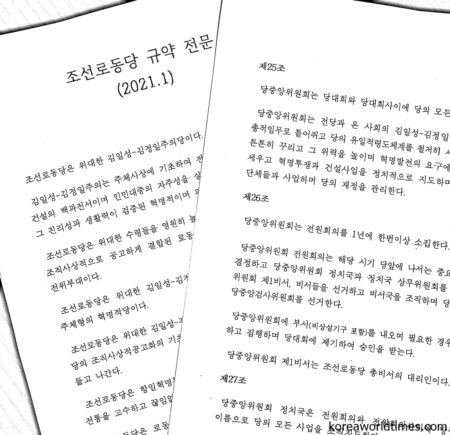 조선로동당 규약 전문
(2021.1)
조선로동당은 위대한 김일성-김정일주의당이다.
김일성-김정일주의는 주체사상에 기초하여 전
건설의 백과전서이며 인민대중의 자주성을 실
그 진리성과 생활력이 검증된 혁명적이며 과
조선로동당은 위대한 수령들을 영원히 높
조직사상적으로 공고하게 결합된 로동
전위부대이다.
조선로동당은 위대한 김일성-김정
주체형의 혁명적당이다.
조선로동당은 위대한 김일성-김
당의 조직사상적공고화의 기초
들고 나간다.
조선로동당은 항일혁명
전통을 고수하고 끊임없
조선로동당은 로동
제25조
당중앙위원회는 당대회와 당대회사이에 당의 모든
당중앙위원회는 전당과 온 사회의 김일성-김정일
총적임무로 틀어쥐고 당의 유일적령도체계를 철저히
튼튼히 꾸리고 그 위력을 높이며 혁명발전의 요구에
세우고 혁명투쟁과 건설사업을 정치적으로 지도하며
단체들과 사업하며 당의 재정을 관리한다.
제26조
당중앙위원회는 전원회의를 1년에 한번이상 소집한다.
당중앙위원회 전원회의는 해당 시기 당앞에 나서는 중요
결정하고 당중앙위원회 정치국과 정치국 상무위원회를
위원회 제1비서, 비서들을 선거하고 비서국을 조직하며 당
당중앙검사위원회를 선거한다.
당중앙위원회에 부서(비상설기구 포함)를 내오며 필요한 경우
하고 집행하며 당대회에 제기하여 승인을 받는다.
당중앙위원회 제1비서는 조선로동당 총비서의 대리인이다.
제27조
당중앙위원회 정치국은 전원회의와
이름으로 당의 모든 사업을
koreaworldtimes.com